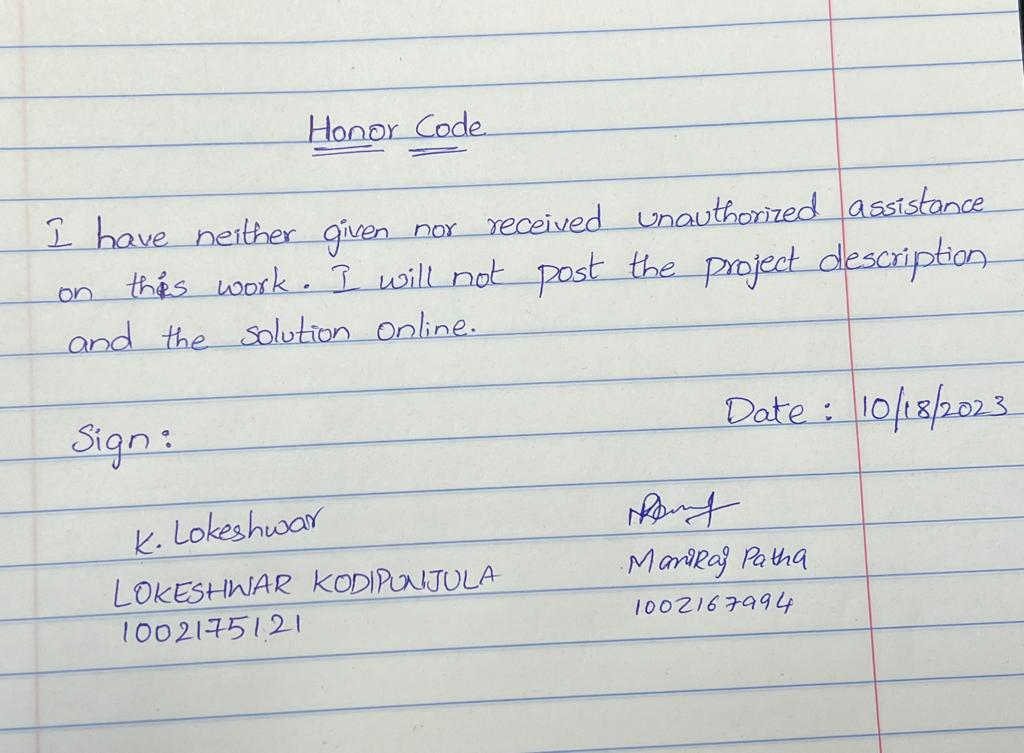 Honor Code
I have neither given nor received unauthorized assistance
on this work. I will not post the project description
and the solution online.
Date: 10/18/2023
Sign:
K. Lokeshwar
LOKESHWAR KODIPUNJULA
1002175121
ManiRaj Patha
1002167994